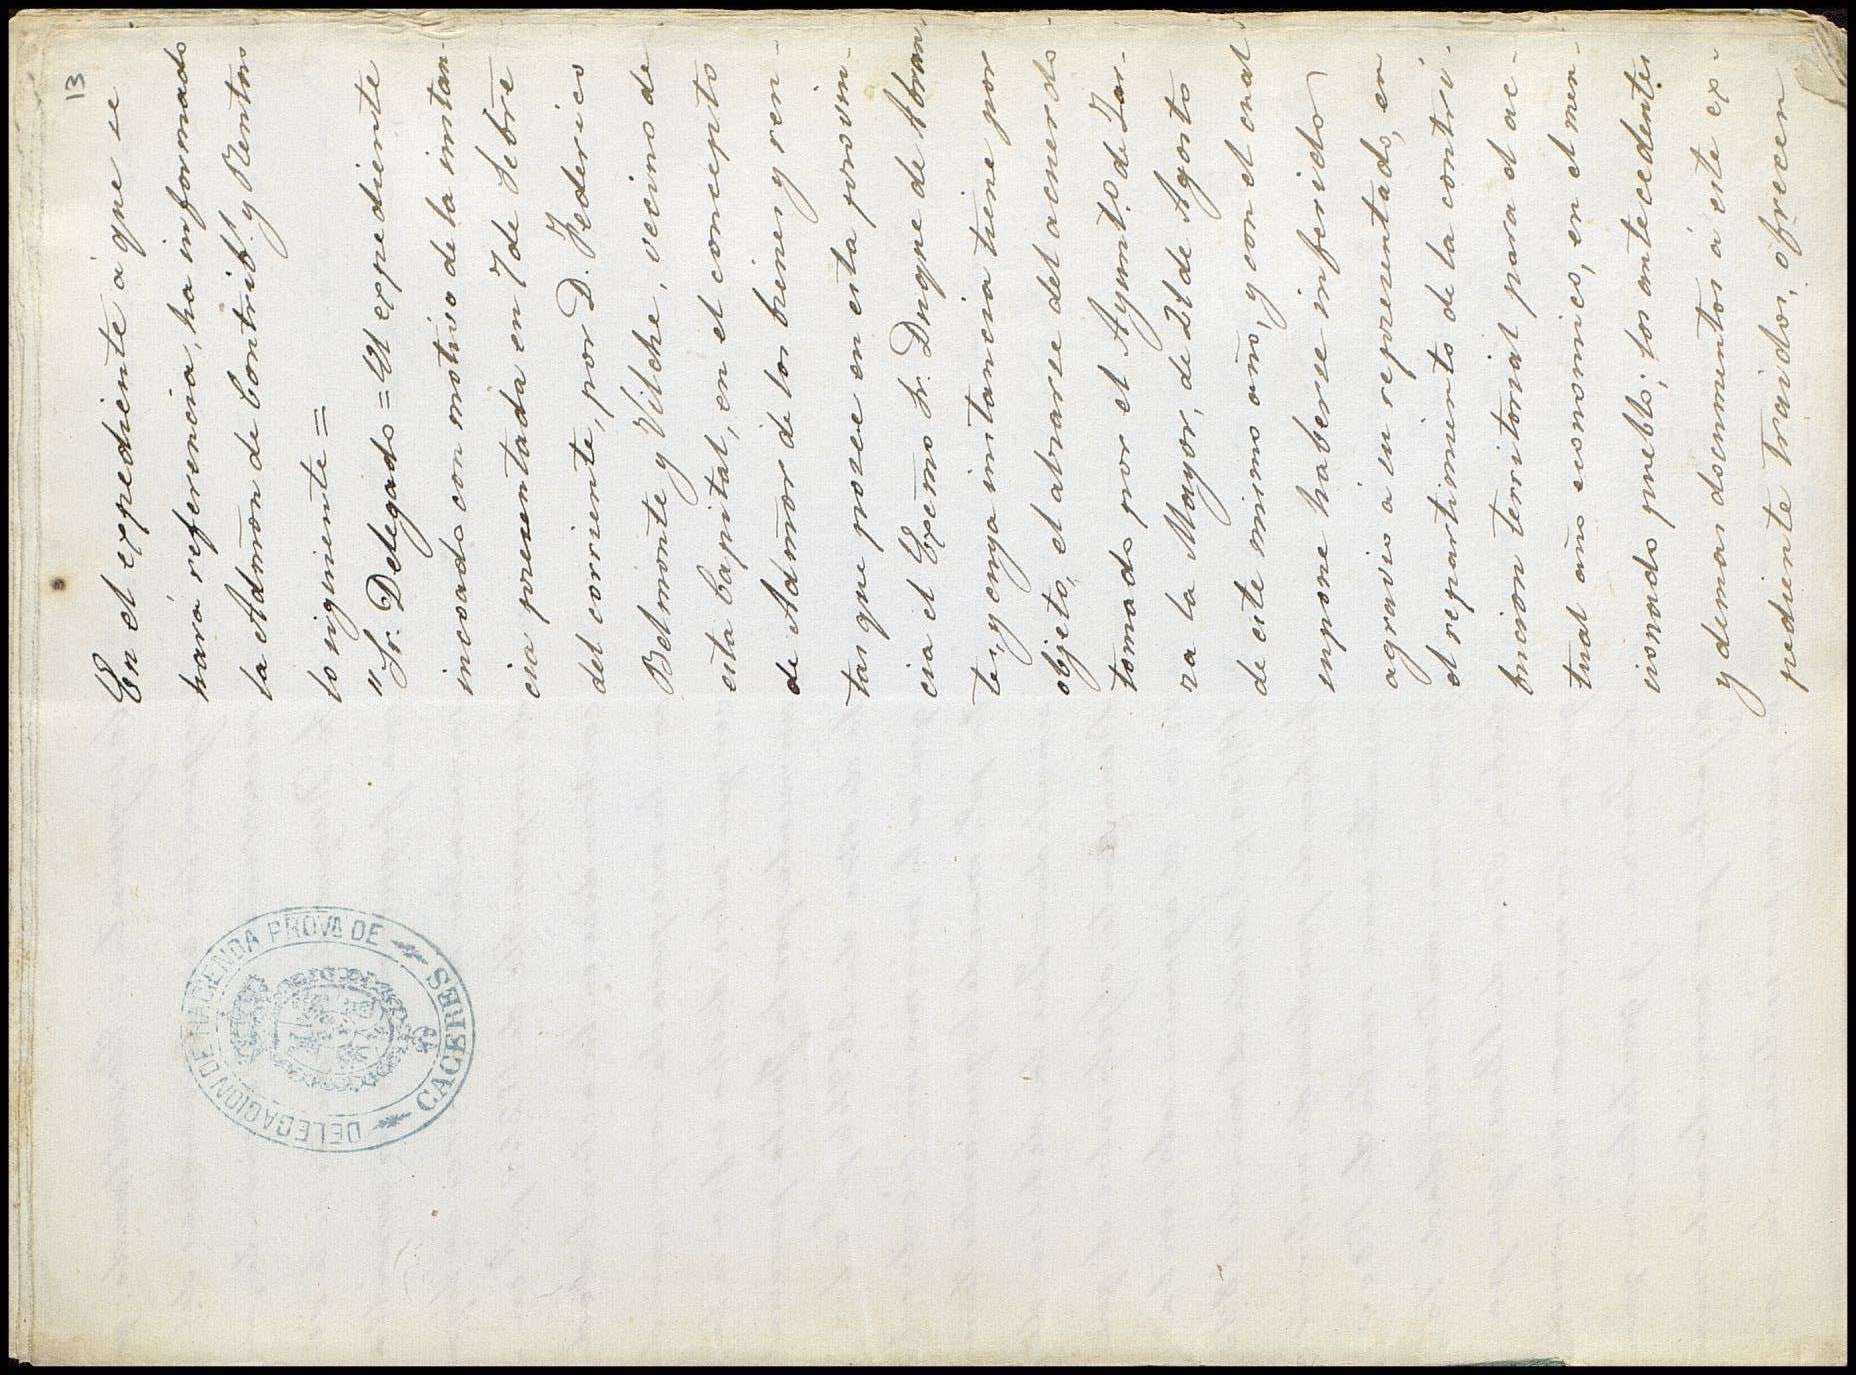 13
En el expediente á que se
hará referencia, ha informado
la Admõn de Contrib.s y Rentas
lo siguiente =
"Sr. Delegado = El expediente
incoado con motivo de la instan-
cia presentada en 7 de Sebre
del corriente, por D. Federico
Belmonte y Vilche, vecino de
esta Capital, en el concepto
de Admõr de los bienes y ren-
tas que posee en esta provin-
cia el Excmo Sr. Duque de Abran-
tes, y cuya instancia tiene por
objeto, el alzarse del acuerdo
tomado por el Ayunt.o de Zar-
za la Mayor, de 21 de Agosto
de este mismo año, y con el cual
supone haberse inferido
agravio a su representado, en
el repartimiento de la contri-
bucion territorial para el ac-
tual año economico, en el men-
cionado pueblo; los antecedentes
y demas documentos á este ex-
pediente traidos, ofrecen
DELEGACION DE HACIENDA PROVA DE
CACERES